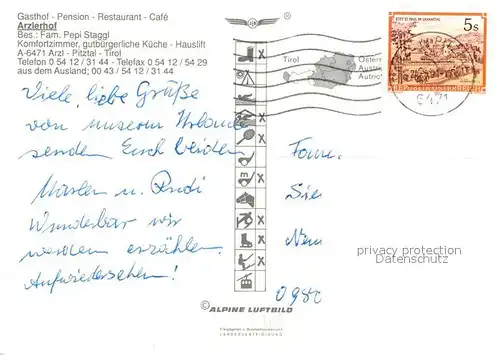 Gasthof - Pension - Restaurant - Café
Arzlerhof
Bes.: Fam. Pepi Staggl
Komfortzimmer, gutbürgerliche Küche - Hauslift
A-6471 Arzl - Pitztal - Tirol
Telefon 0 54 12 / 31 44 - Telefax 0 54 12 / 54 29
aus dem Ausland; 00 43 / 54 12 / 31 44
Viele, liebe Grüße
von unserem Urlaube
senden Euch beiden
Marlen u. Rudi
Wunderbar wir
werden erzählen.
Aufwiedersehen!
Tirol
Österr
Austri
Autric
5s
REPUBLIK ÖSTERREICH
6471
Fam.
Neu
privacy protection
Datenschutz
© ALPINE LUFTBILD